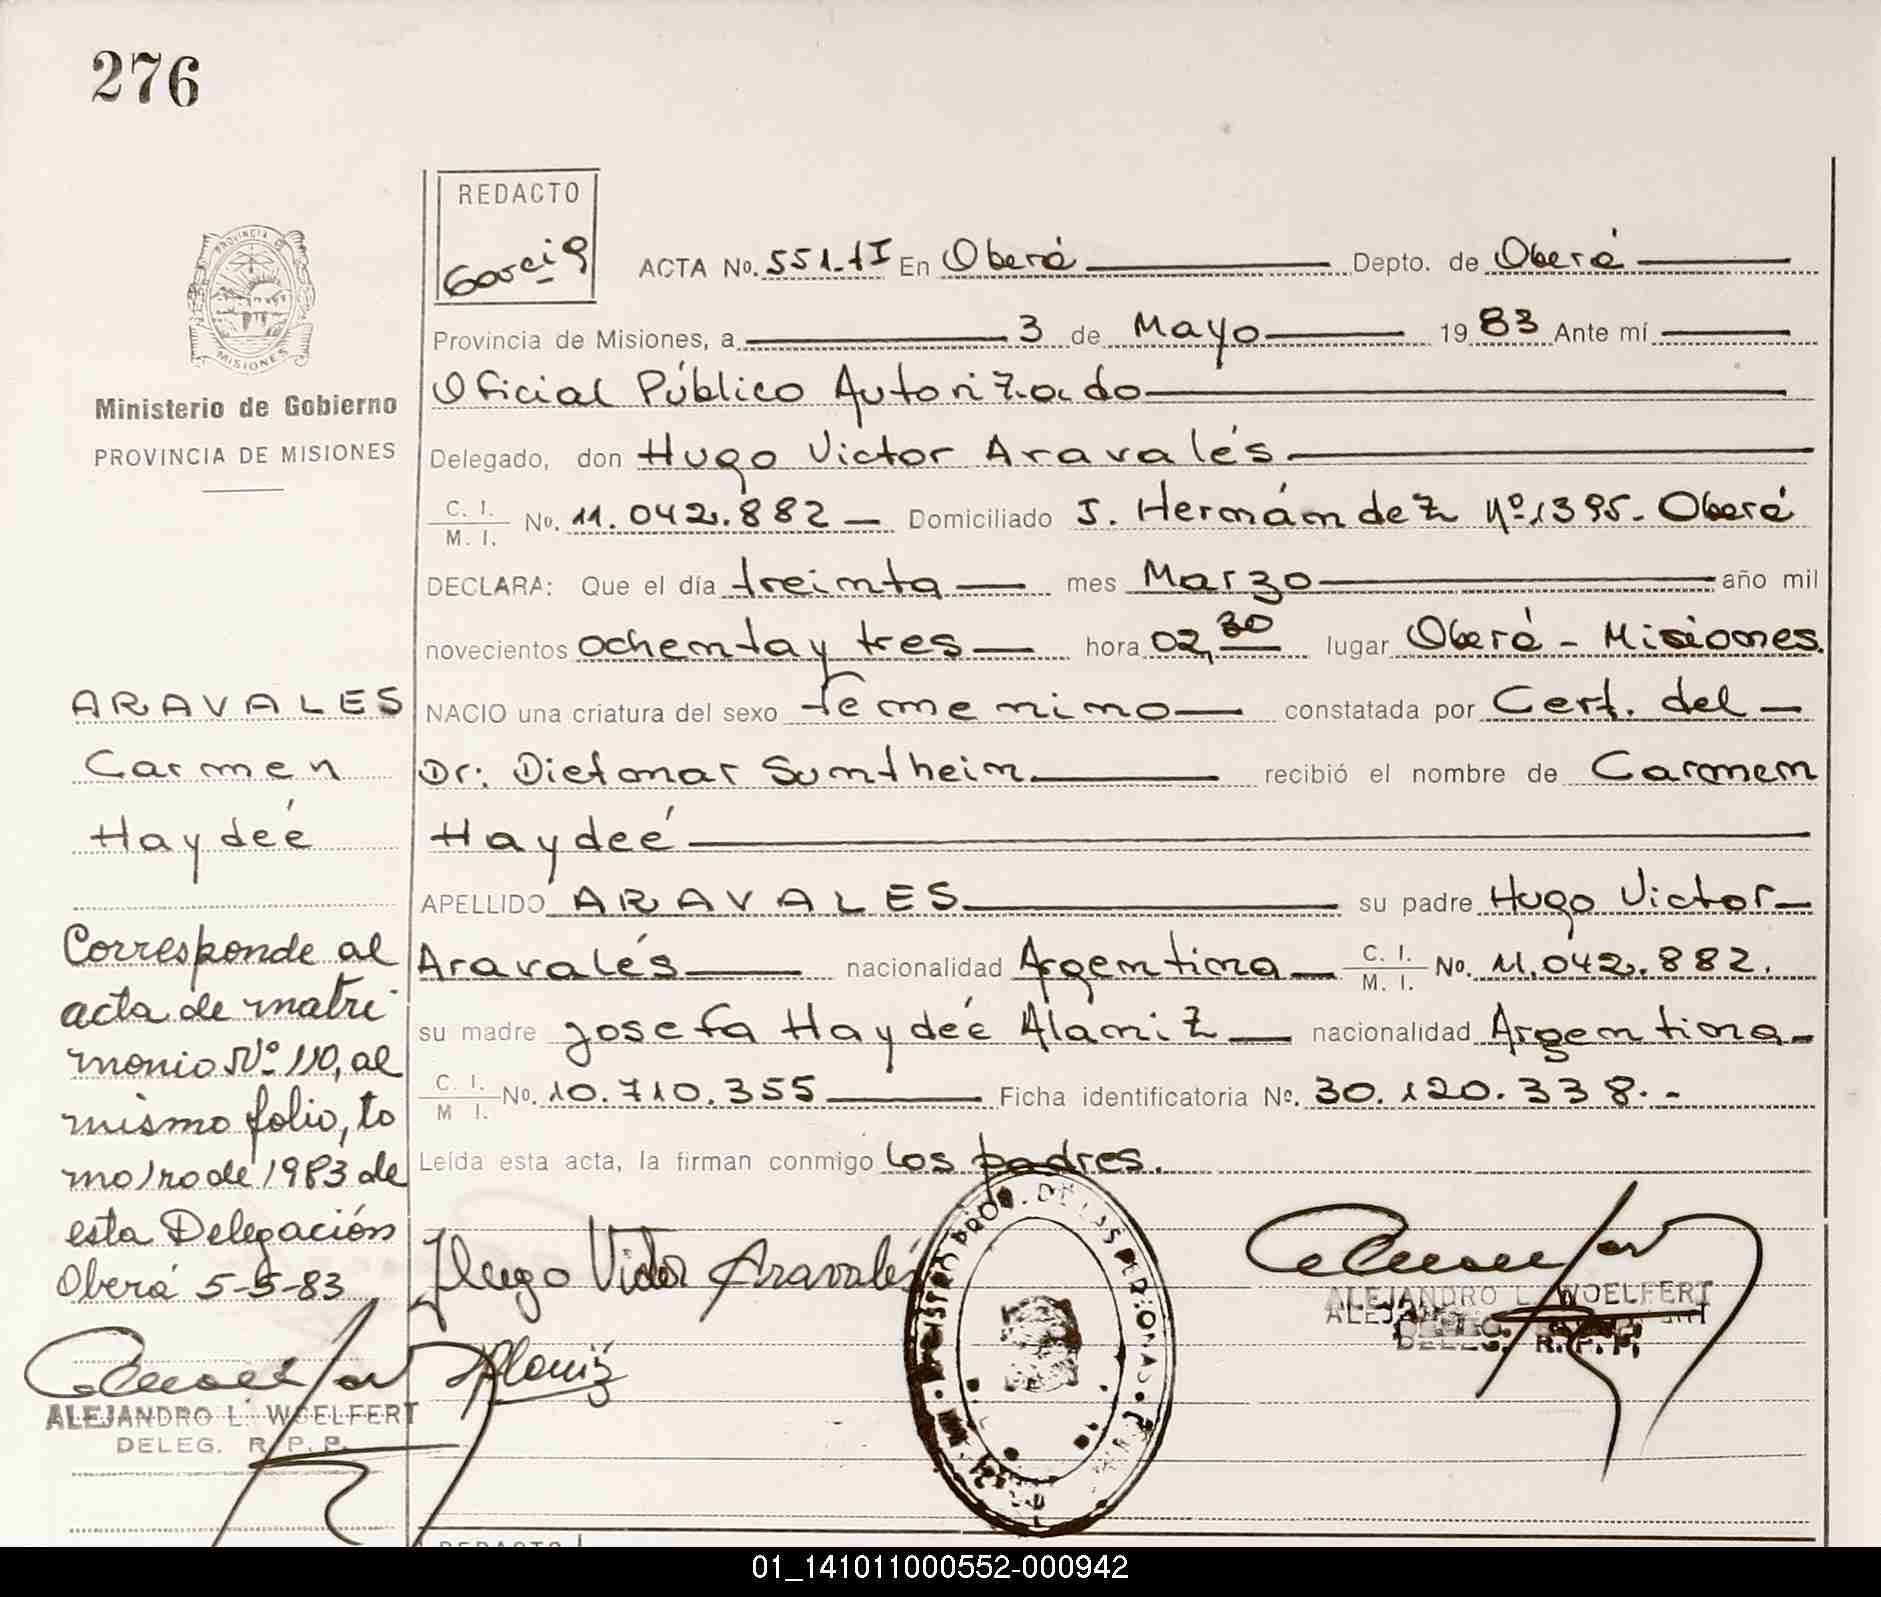 276
REDACTO
García
PROVINCIA DE
MISIONES
Ministerio de Gobierno
PROVINCIA DE MISIONES
ACTA No. 551-tI En Oberá Depto. de Oberá
Provincia de Misiones, a 3 de Mayo 19 83 Ante mí
Oficial Público Autorizado
Delegado, don Hugo Victor Aravalés
C. I. / M. I. No. 11.042.882 Domiciliado J. Hernández Nº 1395- Oberá
DECLARA: Que el día treinta mes Marzo año mil
novecientos ochenta y tres hora 02,30 lugar Oberá - Misiones.
NACIO una criatura del sexo femenino constatada por Cert. del
Dr. Dietmar Suntheim recibió el nombre de Carmen
Haydeé
APELLIDO ARAVALES su padre Hugo Victor
Aravalés nacionalidad Argentina C. I. / M. I. No. 11.042.882.
su madre Josefa Haydeé Alamiz nacionalidad Argentina
C. I. / M I. No. 10.710.355 Ficha identificatoria No. 30.120.338.-
Leída esta acta, la firman conmigo los padres.
Hugo Victor Aravalés
ALEJANDRO L. WOELFERT
DELEG. R. P. P.
ARAVALES
Carmen
Haydeé
Corresponde al
acta de matri
monio Nº 110, al
mismo folio, to
mo 1ro de 1983 de
esta Delegación
Oberá 5-5-83
ALEJANDRO L. WOELFERT
DELEG. R. P. P.
REDACTO
01_141011000552-000942